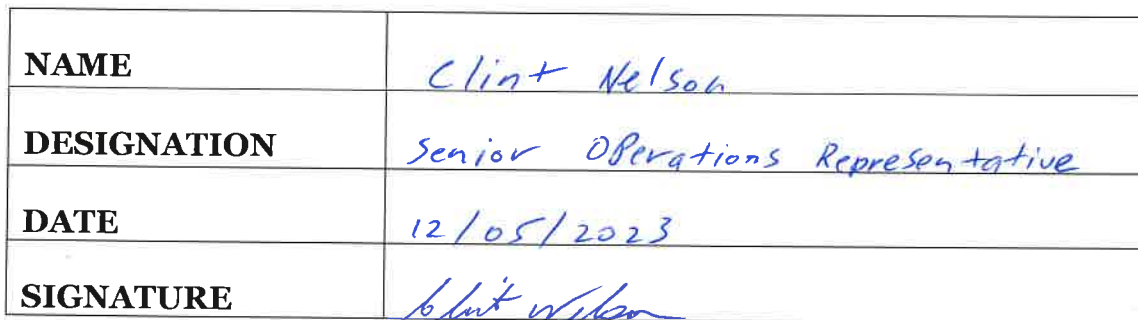 NAME Clint Nelson
DESIGNATION Senior Operations Representative
DATE 12/05/2023
SIGNATURE